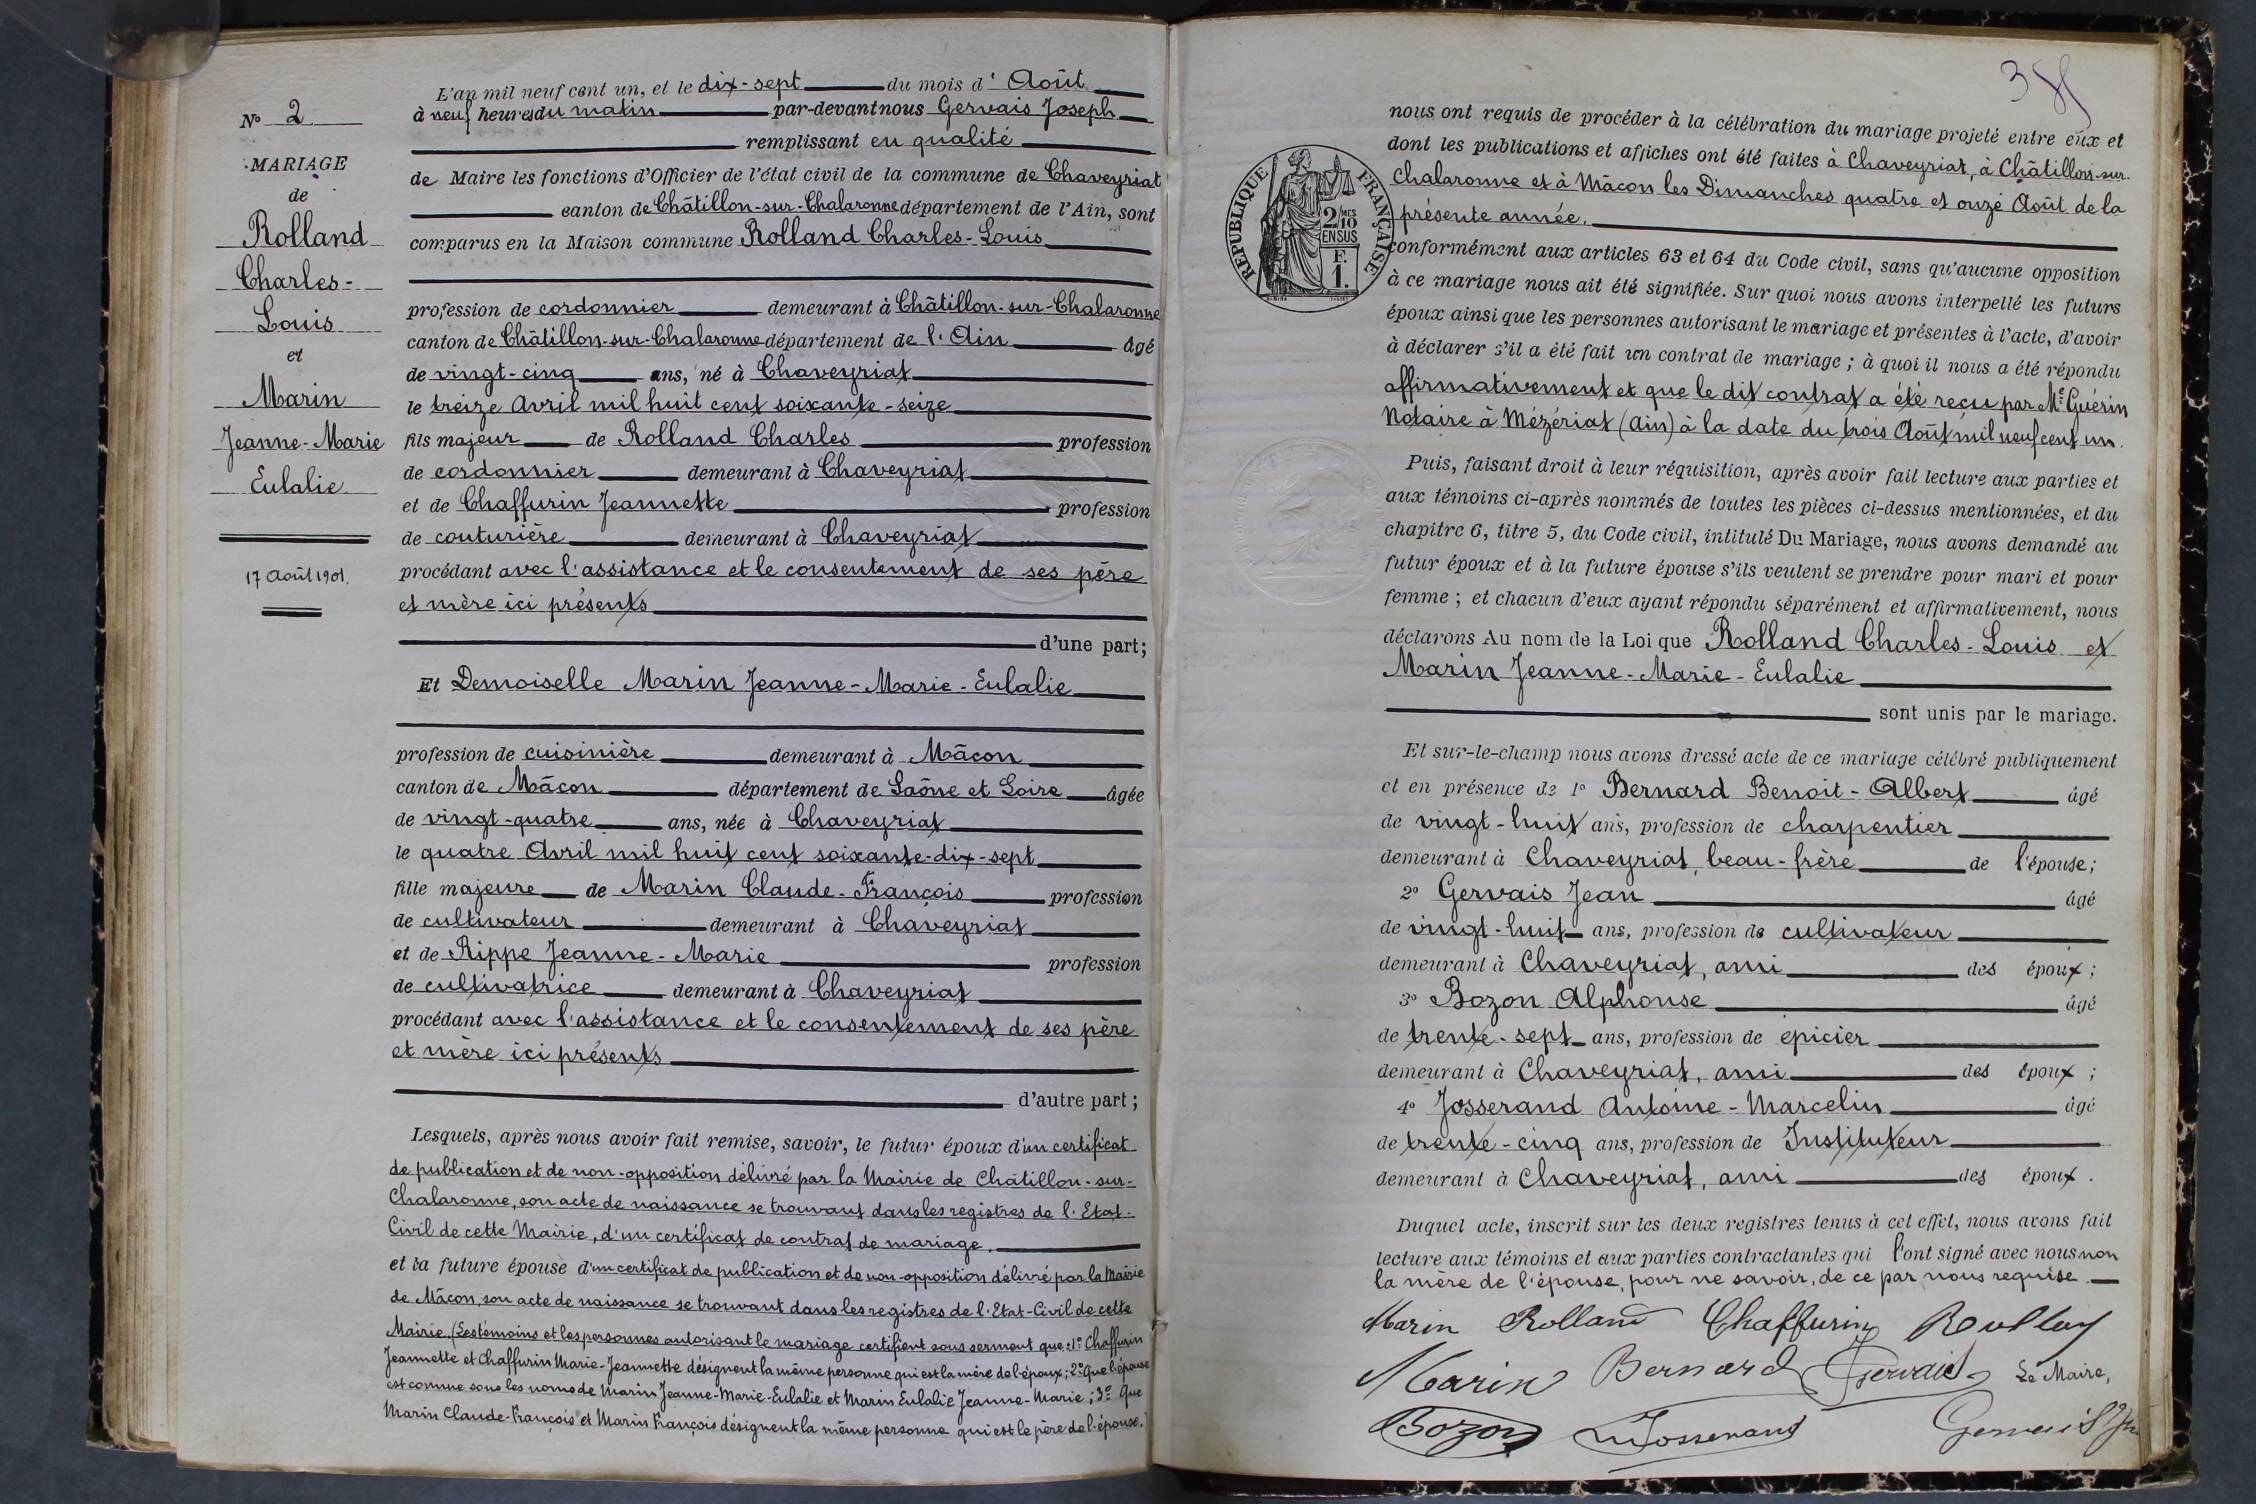 N° 2
MARIAGE
de
Rolland
Charles-
Louis
et
Marin
Jeanne-Marie
Eulalie
17 Août 1901.
L'an mil neuf cent un, et le dix-sept du mois d'Août
à neuf heures du matin par-devant nous Gervais Joseph
remplissant en qualité
de Maire les fonctions d'Officier de l'état civil de la commune de Chaveyriat
canton de Châtillon-sur-Chalaronne département de l'Ain, sont
comparus en la Maison commune Rolland Charles-Louis
profession de cordonnier demeurant à Châtillon-sur-Chalaronne
canton de Châtillon-sur-Chalaronne département de l'Ain âgé
de vingt-cinq ans, né à Chaveyriat
le treize Avril mil huit cent soixante-seize
fils majeur de Rolland Charles profession
de cordonnier demeurant à Chaveyriat
et de Chaffurin Jeannette profession
de couturière demeurant à Chaveyriat
procédant avec l'assistance et le consentement de ses père
et mère ici présents
d'une part;
Et Demoiselle Marin Jeanne-Marie-Eulalie
profession de cuisinière demeurant à Mâcon
canton de Mâcon département de Saône et Loire âgée
de vingt-quatre ans, née à Chaveyriat
le quatre Avril mil huit cent soixante-dix-sept
fille majeure de Marin Claude-François profession
de cultivateur demeurant à Chaveyriat
et de Rippe Jeanne-Marie profession
de cultivatrice demeurant à Chaveyriat
procédant avec l'assistance et le consentement de ses père
et mère ici présents
d'autre part;
Lesquels, après nous avoir fait remise, savoir, le futur époux d'un certificat
de publication et de non-opposition délivré par la Mairie de Châtillon-sur-
Chalaronne, son acte de naissance se trouvant dans les registres de l'Etat-
Civil de cette Mairie, d'un certificat de contrat de mariage.
et la future épouse d'un certificat de publication et de non-opposition délivré par la Mairie
de Mâcon, son acte de naissance se trouvant dans les registres de l'Etat-Civil de cette
Mairie. (Les témoins et les personnes autorisant le mariage certifient sous serment que: 1° Chaffurin
Jeannette et Chaffurin Marie-Jeannette désignent la même personne qui est la mère de l'époux; 2° Que l'épouse
est connue sous les noms de Marin Jeanne-Marie-Eulalie et Marin Eulalie Jeanne-Marie; 3° Que
Marin Claude-François et Marin François désignent la même personne qui est le père de l'épouse.)
nous ont requis de procéder à la célébration du mariage projeté entre eux et
dont les publications et affiches ont été faites à Chaveyriat, à Châtillon-sur-
Chalaronne et à Mâcon les Dimanches quatre et onze Août de la
présente année.
RÉPUBLIQUE FRANÇAISE
2/10
MES
EN SUS
F.
1.
conformément aux articles 63 et 64 du Code civil, sans qu'aucune opposition
à ce mariage nous ait été signifiée. Sur quoi nous avons interpellé les futurs
époux ainsi que les personnes autorisant le mariage et présentes à l'acte, d'avoir
à déclarer s'il a été fait un contrat de mariage; à quoi il nous a été répondu
affirmativement et que le dit contrat a été reçu par Me Guérin
Notaire à Mézériat (Ain) à la date du trois Août mil neuf cent un.
Puis, faisant droit à leur réquisition, après avoir fait lecture aux parties et
aux témoins ci-après nommés de toutes les pièces ci-dessus mentionnées, et du
chapitre 6, titre 5, du Code civil, intitulé Du Mariage, nous avons demandé au
futur époux et à la future épouse s'ils veulent se prendre pour mari et pour
femme; et chacun d'eux ayant répondu séparément et affirmativement, nous
déclarons Au nom de la Loi que Rolland Charles-Louis et
Marin Jeanne-Marie-Eulalie
sont unis par le mariage.
Et sur-le-champ nous avons dressé acte de ce mariage célébré publiquement
et en présence de 1° Bernard Benoit-Albert âgé
de vingt-huit ans, profession de charpentier
demeurant à Chaveyriat, beau-frère de l'épouse;
2° Gervais Jean âgé
de vingt-huit ans, profession de cultivateur
demeurant à Chaveyriat, ami des époux;
3° Bozon Alphonse âgé
de trente-sept ans, profession de epicier
demeurant à Chaveyriat, ami des époux;
4° Josserand Antoine-Marcelin âgé
de trente-cinq ans, profession de Instituteur
demeurant à Chaveyriat, ami des époux.
Duquel acte, inscrit sur les deux registres tenus à cet effet, nous avons fait
lecture aux témoins et aux parties contractantes qui l'ont signé avec nous non
la mère de l'épouse, pour ne savoir, de ce par nous requise.
Marin Rolland Chaffurin
Marin Bernard Gervais Le Maire,
Bozon Josserand Gervais